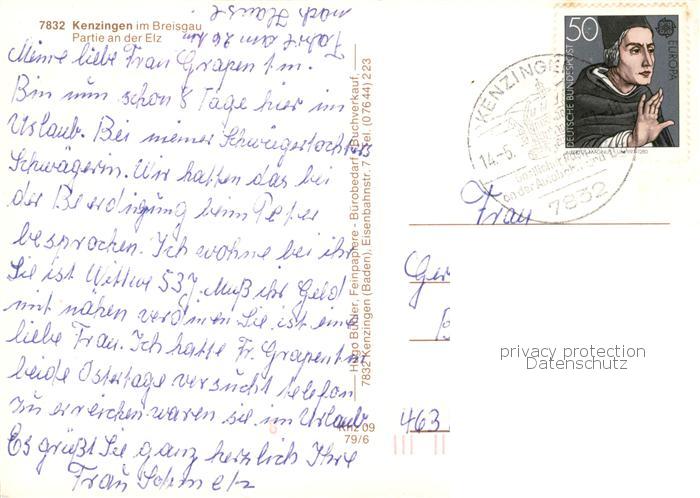 7832 Kenzingen im Breisgau
Partie an der Elz
Fahrt am 26
nach Hause
Meine liebe Frau Grapentin.
Bin nun schon 8 Tage hier im
Urlaub. Bei meiner Schwiegertochters
Schwägerin. Wir hatten das bei
der Beerdigung beim Peter
besprochen. Ich wohne bei ihr
Sie ist Wittwe 53 J. Muß ihr Geld
mit nähen verdinen Sie ist eine
liebe Frau. Ich hatte Fr. Grapentin
beide Ostertage versucht telefon
zu erreichen waren sie im Urlaub
Es grüßt Sie ganz herzlich Ihre
Frau Schmelz
Hugo Buhler, Feinpapiere - Bürobedarf - Buchverkauf,
7832 Kenzingen (Baden), Eisenbahnstr. Tel. (07644) 223
Khz 09
79/6
50
DEUTSCHE BUNDESPOST
EUROPA
KENZINGEN
14.-5.
7832
Frau
Ger
463
privacy protection
Datenschutz